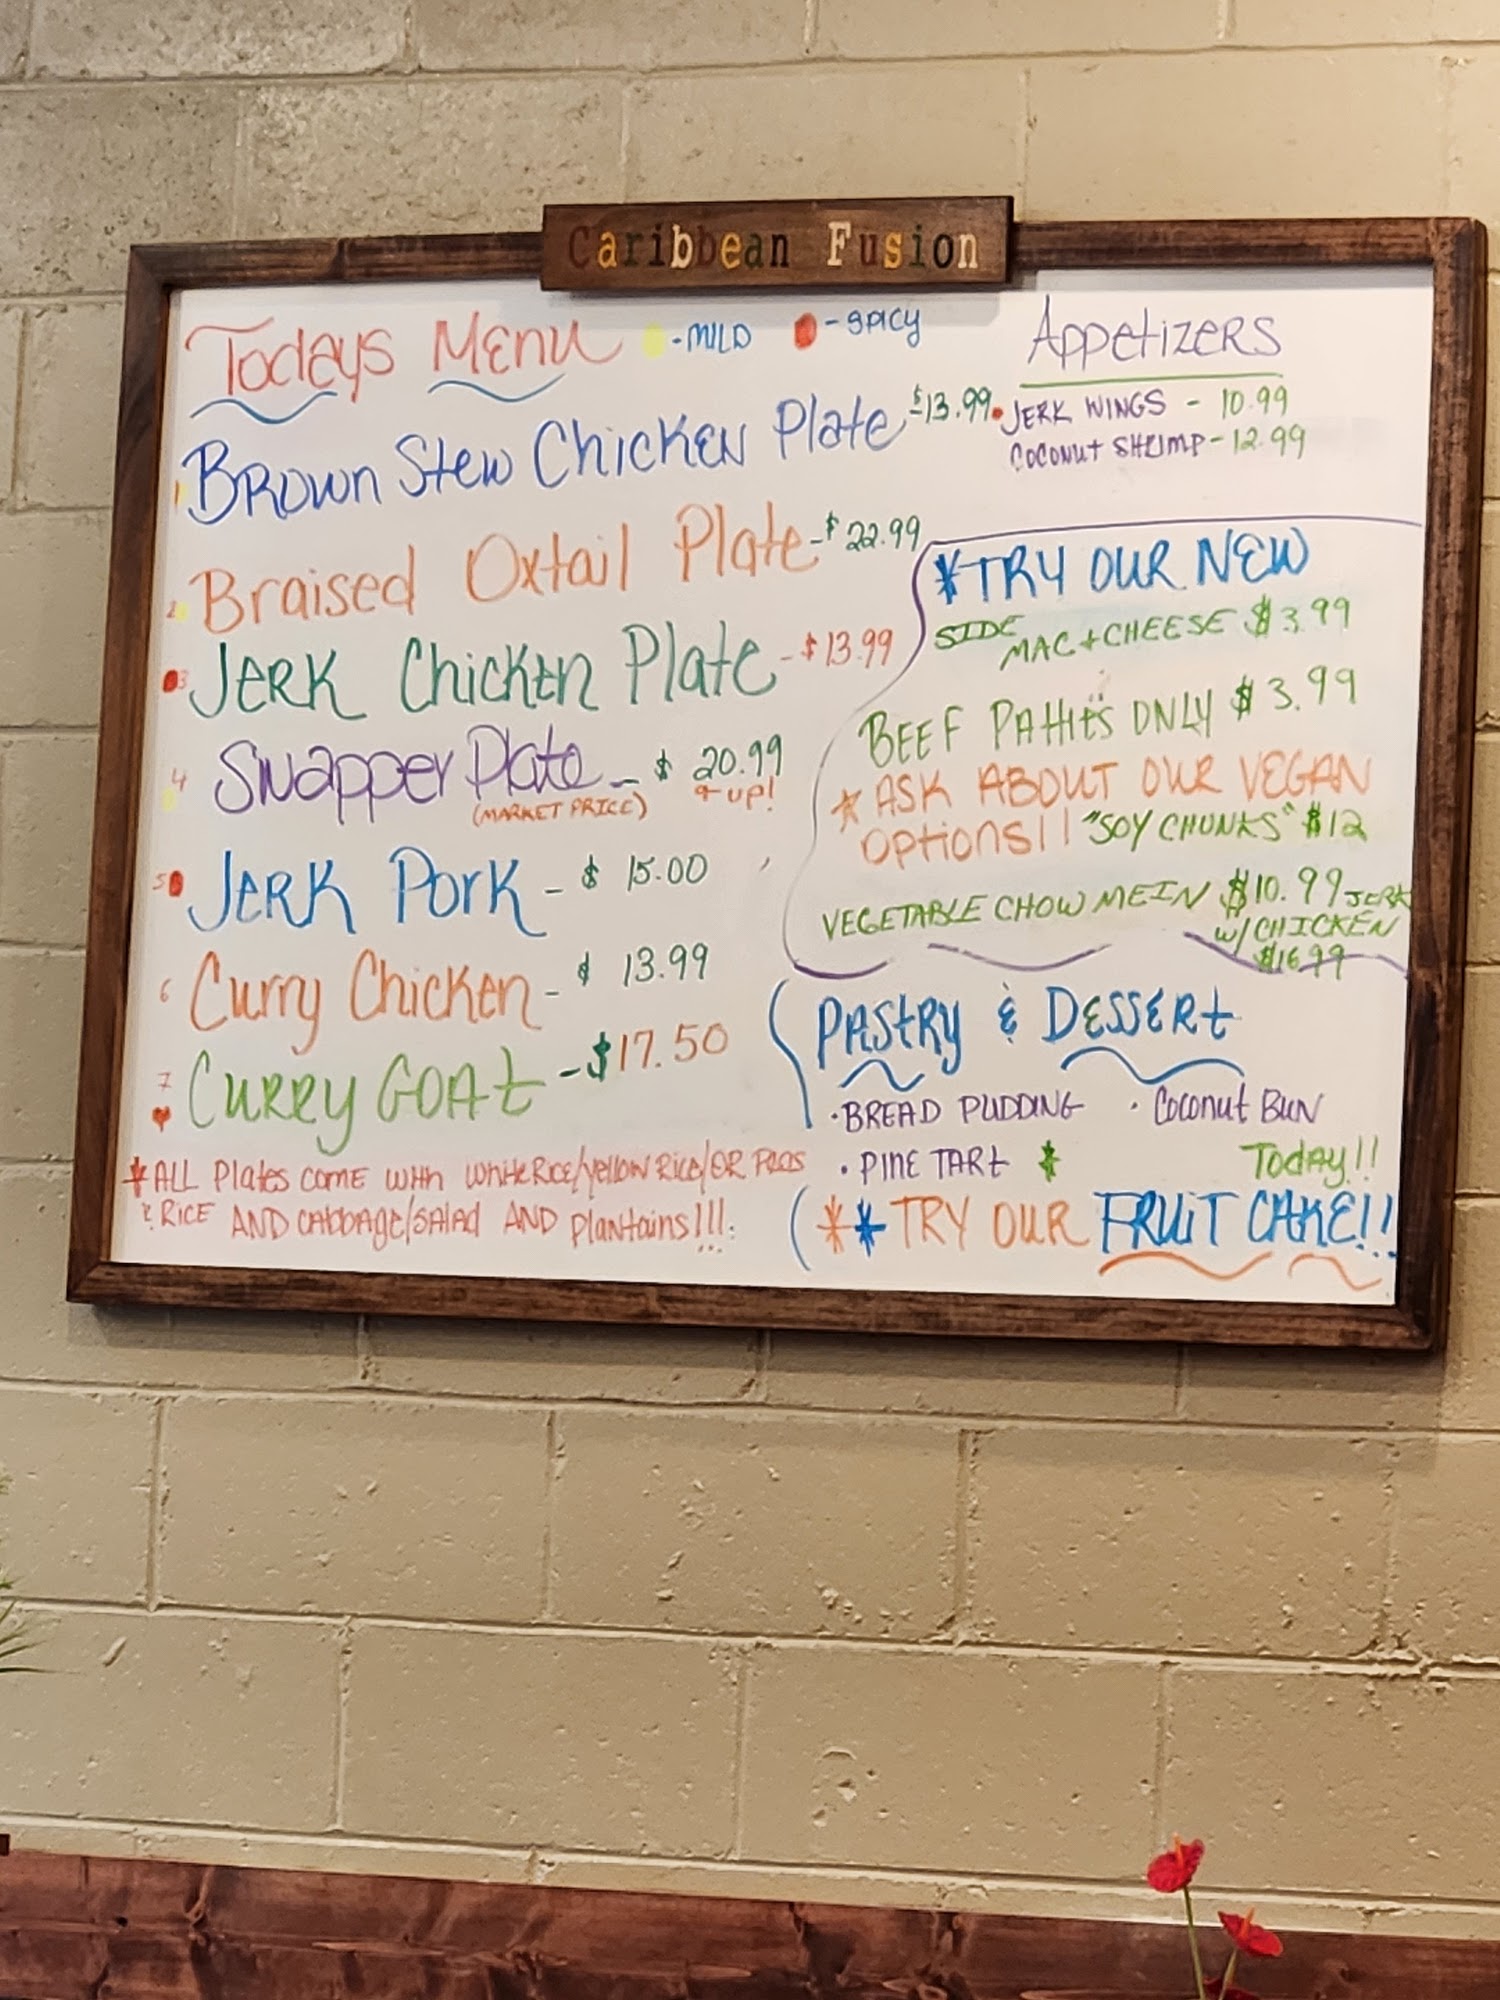 Caribbean Fusion
Todays Menu - MILD - SPICY
1 Brown Stew Chicken Plate $13.99
2 Braised Oxtail Plate - $22.99
3 Jerk Chicken Plate - $13.99
4 Snapper Plate - $ 20.99
(MARKET PRICE) + up!
5 Jerk Pork - $ 15.00
6 Curry Chicken - $ 13.99
7 Curry GOAt - $17.50
*ALL Plates come with White Rice/yellow Rice/OR Peas
& RICE AND cabbage/salad AND plantains!!!
Appetizers
JERK WINGS - 10.99
COCONUT SHRIMP - 12.99
*TRY OUR NEW
SIDE MAC + CHEESE $3.99
BEEF PAttiES ONLY $3.99
*ASK ABOUT OUR VEGAN
OPtiONS!! "SOY CHUNKS" $12
VEGETABLE CHOW MEIN $10.99 JERK
W/CHICKEN
$16.99
PAStRY & DESSERt
• BREAD PUDDING • Coconut BUN
• PINE TARt * Today!!
** TRY OUR FRUIT CAKE!!